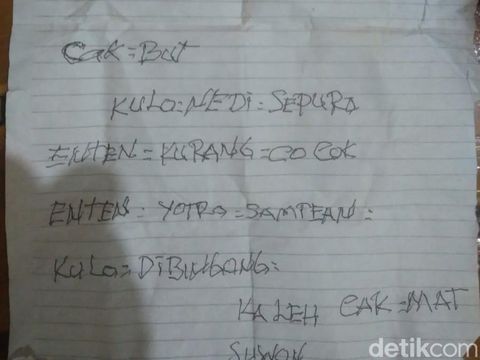 Cak=But
KULO=NEDi=SEPURA
ENTEN=KURANG=COCOK
ENTEN= YOTRO=SAMPEAN=
KULO=DiBINGONG=
KALEH CAK=MAT
SUWON
detikcom